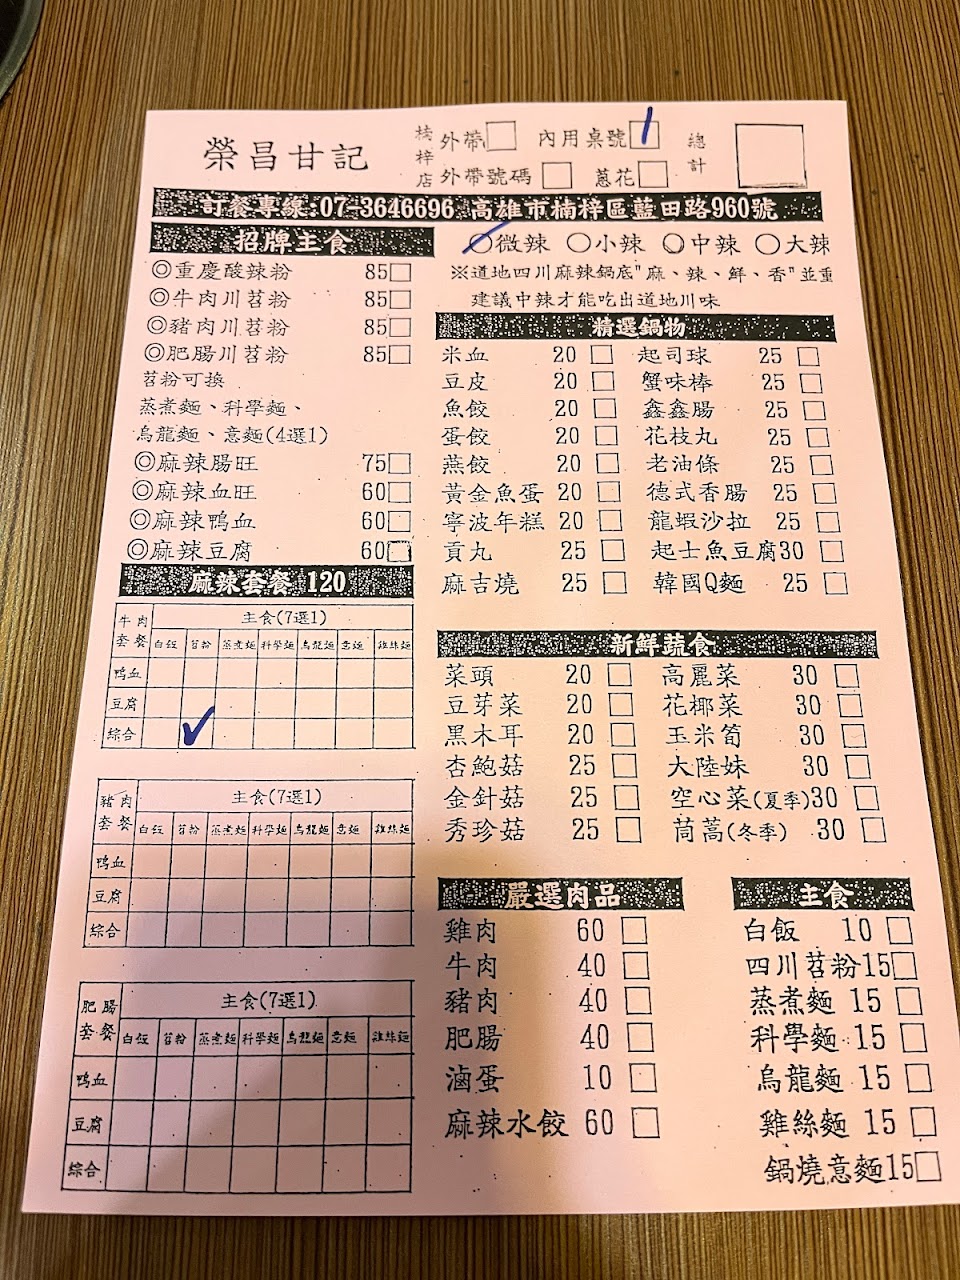 榮昌甘記
楠梓店
外帶 內用桌號 1
外帶號碼 蔥花
總計
訂餐專線:07-3646696 高雄市楠梓區藍田路960號
招牌主食
◎重慶酸辣粉 85
◎牛肉川苕粉 85
◎豬肉川苕粉 85
◎肥腸川苕粉 85
苕粉可換
蒸煮麵、科學麵、
烏龍麵、意麵(4選1)
◎麻辣腸旺 75
◎麻辣血旺 60
◎麻辣鴨血 60
◎麻辣豆腐 60
麻辣套餐 120
牛肉套餐 主食(7選1)
白飯 苕粉 蒸煮麵 科學麵 烏龍麵 意麵 雞絲麵
鴨血
豆腐
綜合 ✓
豬肉套餐 主食(7選1)
白飯 苕粉 蒸煮麵 科學麵 烏龍麵 意麵 雞絲麵
鴨血
豆腐
綜合
肥腸套餐 主食(7選1)
白飯 苕粉 蒸煮麵 科學麵 烏龍麵 意麵 雞絲麵
鴨血
豆腐
綜合
○微辣 ○小辣 ○中辣 ○大辣
※道地四川麻辣鍋底"麻、辣、鮮、香"並重
建議中辣才能吃出道地川味
精選鍋物
米血 20 起司球 25
豆皮 20 蟹味棒 25
魚餃 20 鑫鑫腸 25
蛋餃 20 花枝丸 25
燕餃 20 老油條 25
黃金魚蛋 20 德式香腸 25
寧波年糕 20 龍蝦沙拉 25
貢丸 25 起士魚豆腐30
麻吉燒 25 韓國Q麵 25
新鮮蔬食
菜頭 20 高麗菜 30
豆芽菜 20 花椰菜 30
黑木耳 20 玉米筍 30
杏鮑菇 25 大陸妹 30
金針菇 25 空心菜(夏季)30
秀珍菇 25 茼蒿(冬季) 30
嚴選肉品
雞肉 60
牛肉 40
豬肉 40
肥腸 40
滷蛋 10
麻辣水餃 60
主食
白飯 10
四川苕粉15
蒸煮麵 15
科學麵 15
烏龍麵 15
雞絲麵 15
鍋燒意麵15